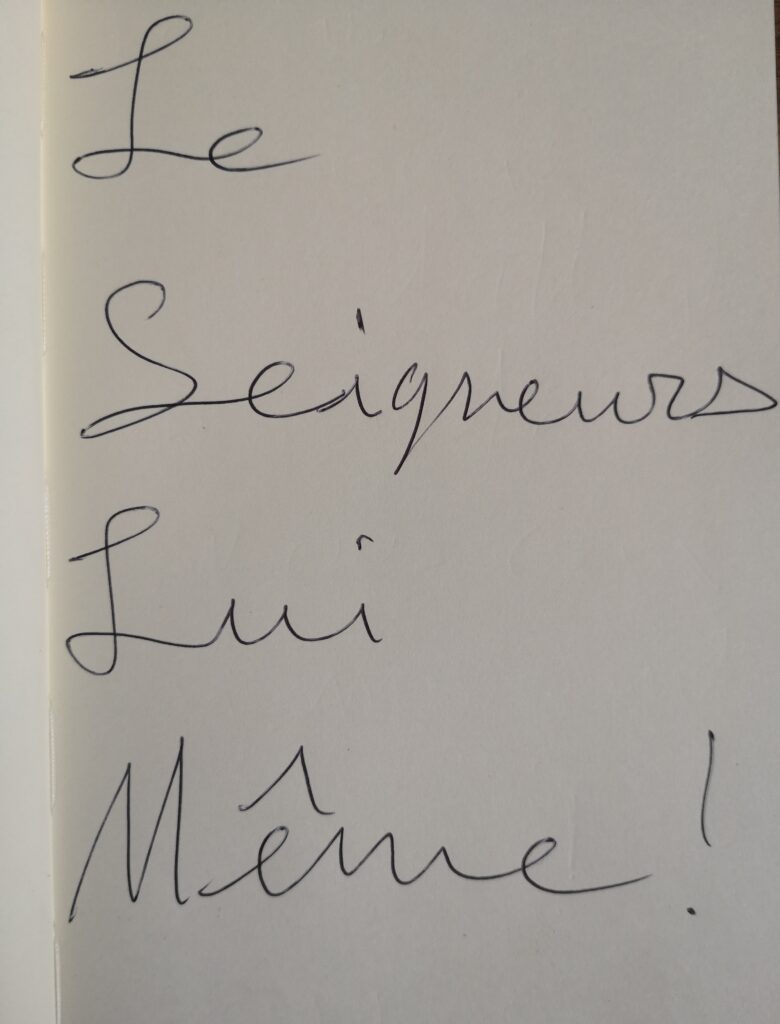 Le
Seigneurs
Lui
Même !